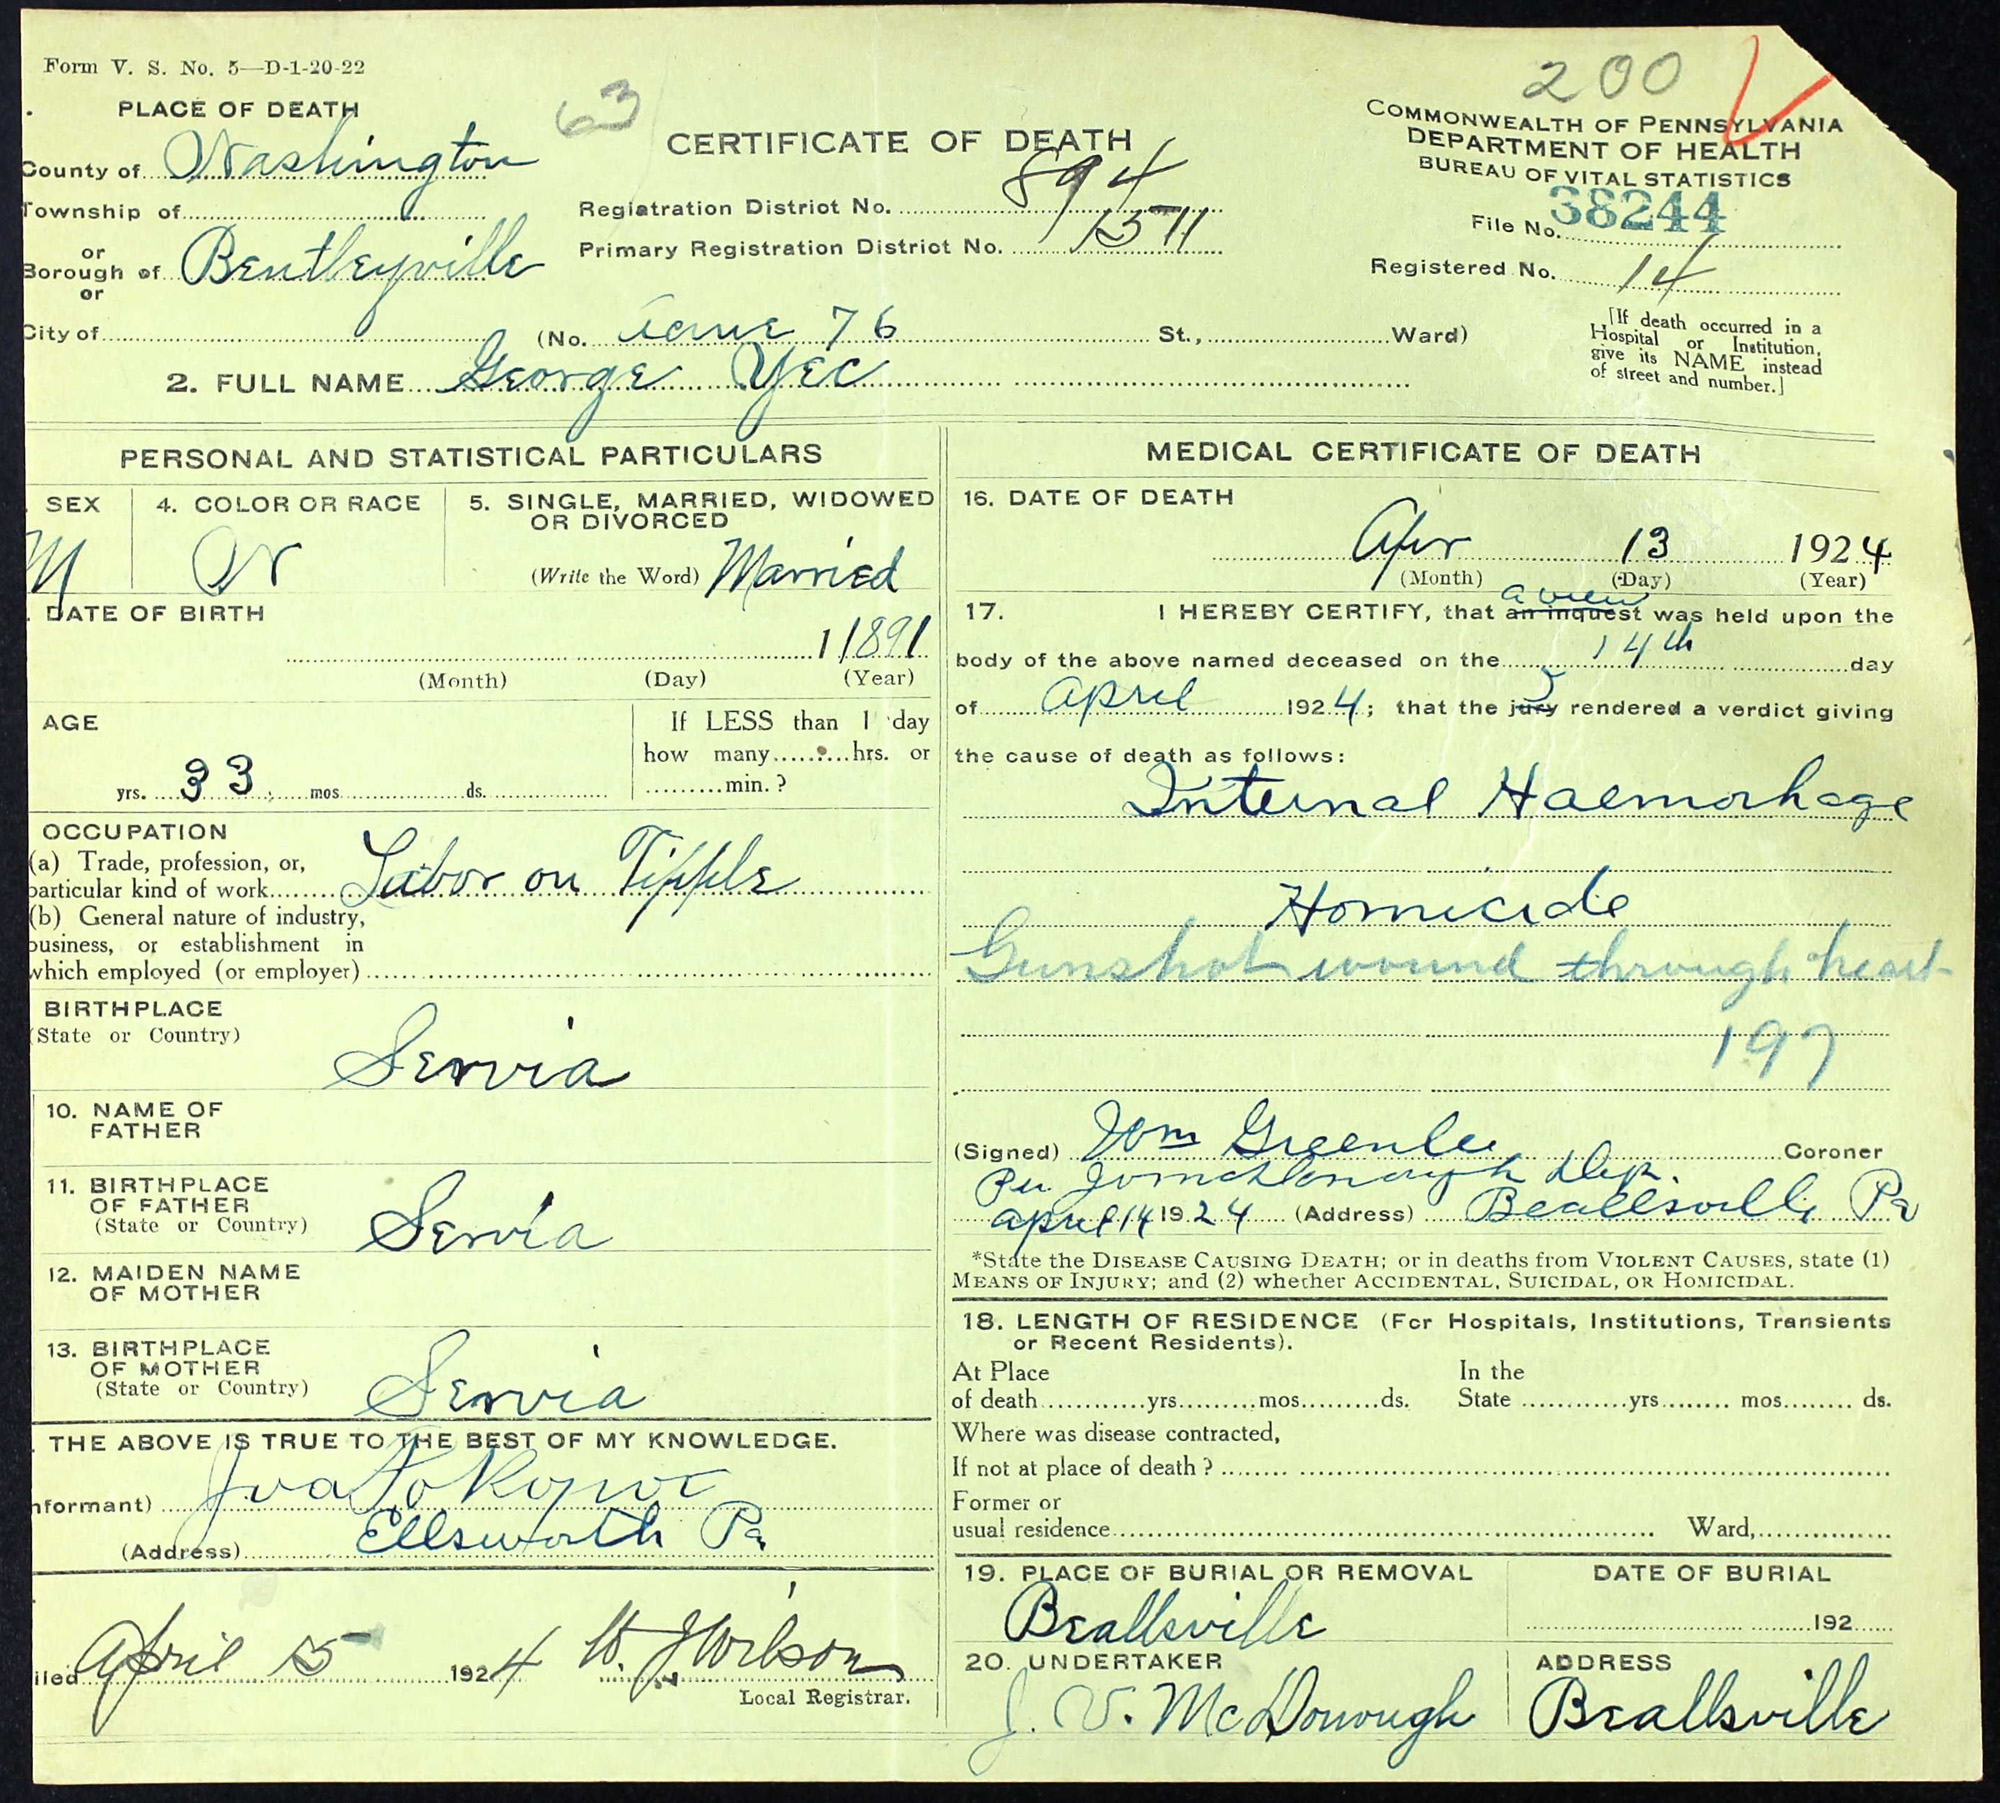 Form V. S. No. 5—D-1-20-22
200
63
PLACE OF DEATH
CERTIFICATE OF DEATH
COMMONWEALTH OF PENNSYLVANIA
DEPARTMENT OF HEALTH
BUREAU OF VITAL STATISTICS
County of Washington
Township of
Registration District No. 894
File No. 38244
or
Borough of Bentleyville
or
Primary Registration District No. 1571
Registered No. 14
City of (No. 76 St., Ward)
[If death occurred in a
Hospital or Institution,
give its NAME instead
of street and number.]
2. FULL NAME George Yec
PERSONAL AND STATISTICAL PARTICULARS
SEX
M
4. COLOR OR RACE
W
5. SINGLE, MARRIED, WIDOWED
OR DIVORCED
(Write the Word) Married
DATE OF BIRTH
1 1891
(Month) (Day) (Year)
AGE
yrs. 33 mos. ds.
If LESS than 1 day
how many hrs. or
min.?
OCCUPATION
(a) Trade, profession, or,
particular kind of work Labor on Tipple
(b) General nature of industry,
business, or establishment in
which employed (or employer)
BIRTHPLACE
(State or Country)
Servia
10. NAME OF
FATHER
11. BIRTHPLACE
OF FATHER
(State or Country)
Servia
12. MAIDEN NAME
OF MOTHER
13. BIRTHPLACE
OF MOTHER
(State or Country)
Servia
THE ABOVE IS TRUE TO THE BEST OF MY KNOWLEDGE.
nformant)
(Address) Ellsworth Pa
iled April 15 1924 W. J Wilson
Local Registrar.
MEDICAL CERTIFICATE OF DEATH
16. DATE OF DEATH
Apr 13 1924
(Month) (Day) (Year)
a view
17. I HEREBY CERTIFY, that an inquest was held upon the
body of the above named deceased on the 14th day
of April 1924; that the jury rendered a verdict giving
the cause of death as follows:
Internal Haemorhage
Homicide
Gunshot wound through heart
197
(Signed) Wm Greenlee Coroner
Per McDonough Dep.
April 14 1924 (Address) Beallsville Pa
*State the DISEASE CAUSING DEATH; or in deaths from VIOLENT CAUSES, state (1)
MEANS OF INJURY; and (2) whether ACCIDENTAL, SUICIDAL, OR HOMICIDAL.
18. LENGTH OF RESIDENCE (For Hospitals, Institutions, Transients
or Recent Residents).
At Place
of death yrs. mos. ds.
In the
State yrs. mos. ds.
Where was disease contracted,
If not at place of death?
Former or
usual residence Ward,
19. PLACE OF BURIAL OR REMOVAL
Beallsville
DATE OF BURIAL
192
20. UNDERTAKER
J. V. McDonough
ADDRESS
Beallsville